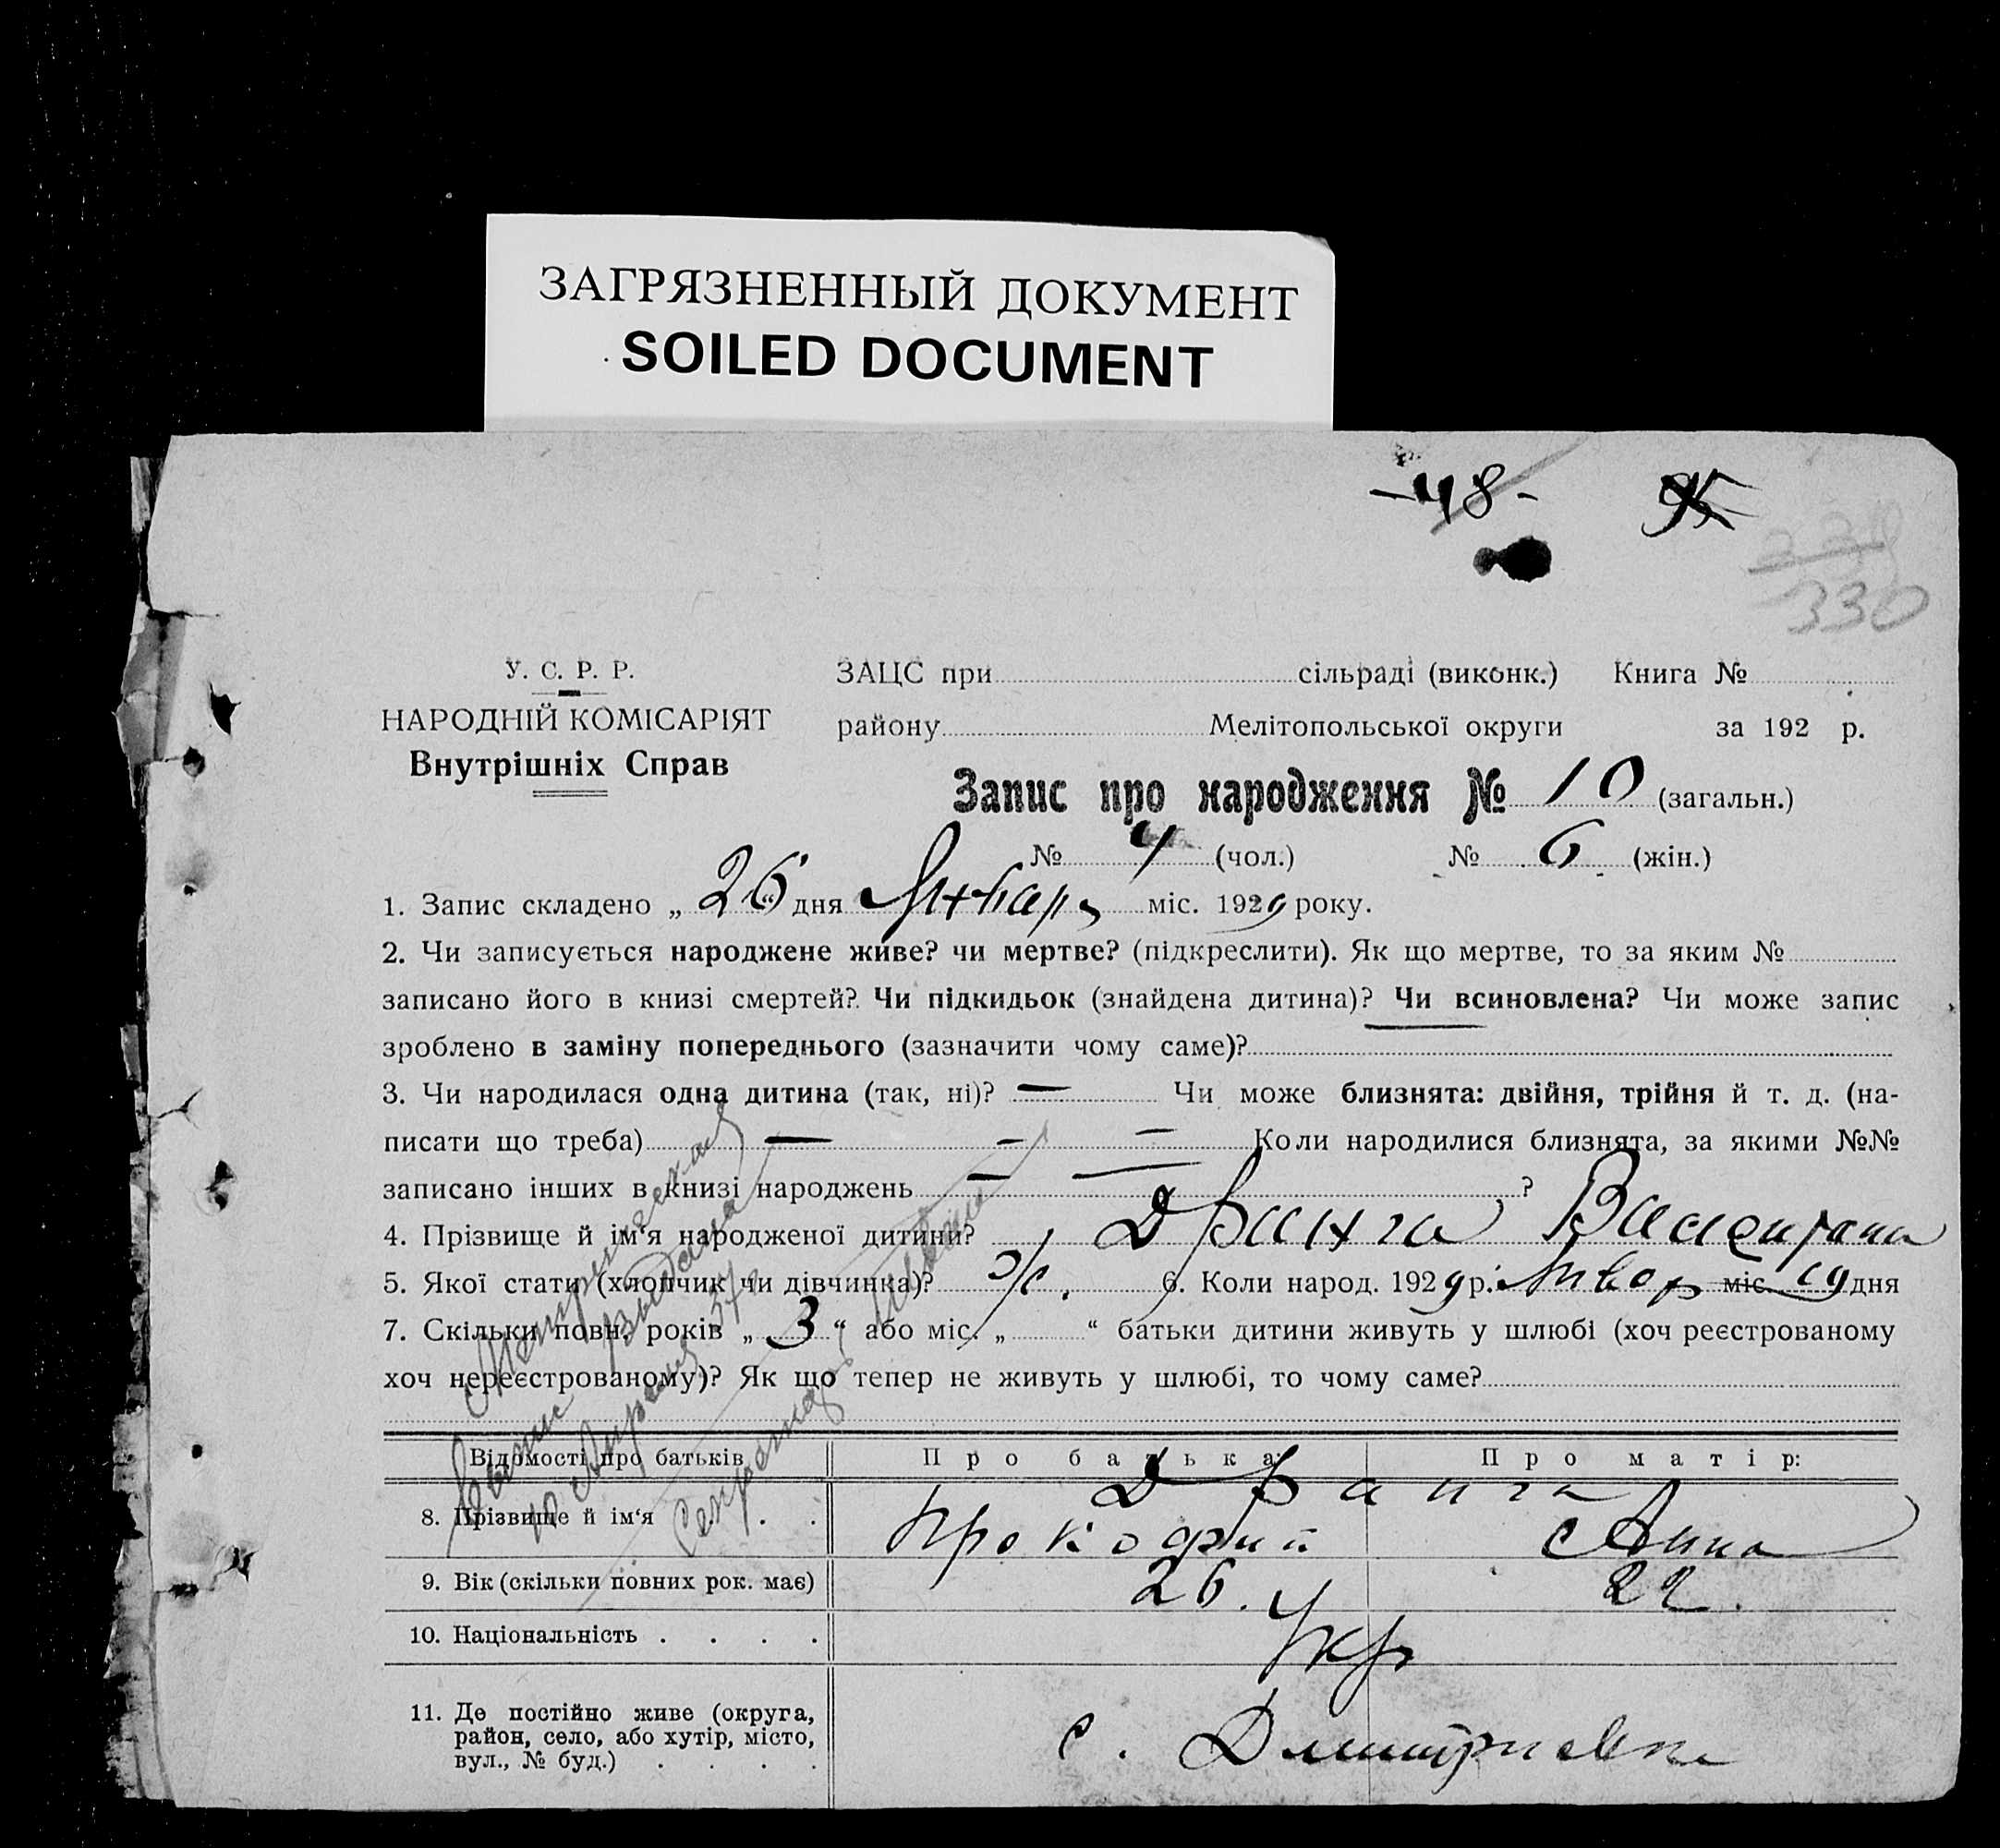 ЗАГРЯЗНЕННЫЙ ДОКУМЕНТ
SOILED DOCUMENT
-48-
330
У. С. Р. Р.
НАРОДНІЙ КОМІСАРІЯТ
Внутрішніх Справ
ЗАЦС при сільраді (виконк.) Книга №
району Мелітопольської округи за 192 р.
Запис про народження № 10 (загальн.)
№ 4 (чол.) № 6 (жін.)
1. Запис складено „ 26 “ дня Январь міс. 1929 року.
2. Чи записується народжене живе? чи мертве? (підкреслити). Як що мертве, то за яким №
записано його в книзі смертей? Чи підкидьок (знайдена дитина)? Чи всиновлена? Чи може запис
зроблено в заміну попереднього (зазначити чому саме)?
3. Чи народилася одна дитина (так, ні)? — Чи може близнята: двійня, трійня й т. д. (на-
писати що треба) — — — Коли народилися близнята, за якими №№
записано інших в книзі народжень — — ?
4. Прізвище й ім‘я народженої дитини? Дранга
5. Якої стати (хлопчик чи дівчинка)? ж. 6. Коли народ. 1929 р. Январ міс. 19 дня
7. Скільки повн. років „ 3 “ або міс. „ “ батьки дитини живуть у шлюбі (хоч реєстрованому
хоч нереєстрованому)? Як що тепер не живуть у шлюбі, то чому саме?
Відомості про батьків Про батька: Про матір:
Дранга
8. Прізвище й ім‘я . . Прокофий Анна
9. Вік (скільки повних рок. має) 26. 22.
10. Національність . . . . Укр
11. Де постійно живе (округа,
район, село, або хутір, місто,
вул., № буд.) . . . . с. Дмитриевка